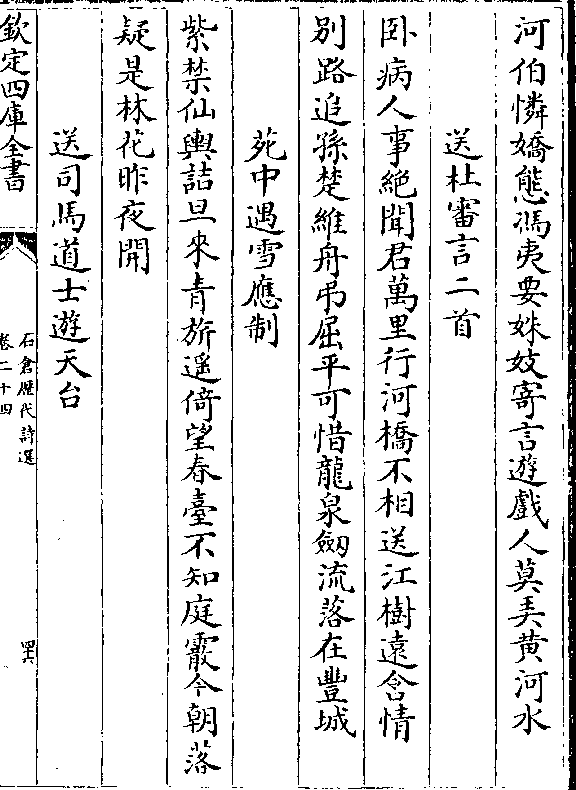 河伯憐嬌態馮夷要姝妓寄言遊戲人莫弄黄河水
送杜審言二首
卧病人事絶聞君萬里行河橋不相送江樹遠含情
别路追孫楚維舟弔屈平可惜龍泉劒流落在豐城
苑中遇雪應制
紫禁仙輿詰旦來青旂遥倚望春臺不知庭霰今朝落
疑是林花昨夜開
送司馬道士遊天台
欽定四庫全書
石倉歴代詩選
卷二十四